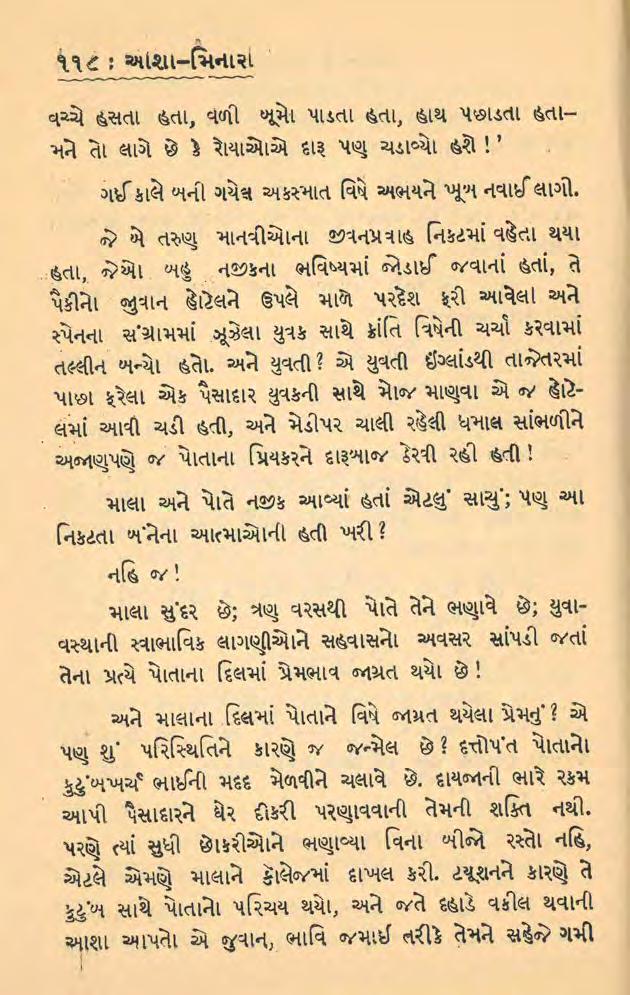 ૧૧૮ : આશા–મિનારા
વચ્ચે હસતા હતા, વળી બૂમો પાડતા હતા, હાથ પછાડતા હતા–
મને તો લાગે છે કે રોયાઓએ દારૂ પણ ચડાવ્યો હશે ! ’
ગઈ કાલે બની ગયેલ અકસ્માત વિષે અભયને ખૂબ નવાઈ લાગી.
જે બે તરુણ માનવીઓના જીવનપ્રવાહ નિકટમાં વહેતા થયા
હતા, જેઓ બહુ નજીકના ભવિષ્યમાં જોડાઈ જવાનાં હતાં, તે
પૈકીનો જુવાન હોટેલને ઉપલે માળે પરદેશ ફરી આવેલા અને
સ્પેનના સંગ્રામમાં ઝૂઝેલા યુવક સાથે ક્રાંતિ વિષેની ચર્ચા કરવામાં
તલ્લીન બન્યો હતો. અને યુવતી ? એ યુવતી ઇંગ્લાંડથી તાજેતરમાં
પાછા ફરેલા એક પૈસાદાર યુવકની સાથે મોજ માણવા એ જ હોટે-
લમાં આવી ચડી હતી, અને મેડીપર ચાલી રહેલી ધમાલ સાંભળીને
અજાણપણે જ પોતાના પ્રિયકરને દારૂબાજ ઠેરવી રહી હતી !
માલા અને પોતે નજીક આવ્યાં હતાં એટલું સાચું; પણ આ
નિકટતા બંનેના આત્માઓની હતી ખરી ?
નહિ જ !
માલા સુંદર છે; ત્રણ વરસથી પોતે તેને ભણાવે છે; યુવા-
વસ્થાની સ્વાભાવિક લાગણીઓને સહવાસનો અવસર સાંપડી જતાં
તેના પ્રત્યે પોતાના દિલમાં પ્રેમભાવ જાગ્રત થયો છે !
અને માલાના દિલમાં પોતાને વિષે જાગ્રત થયેલા પ્રેમનું ? એ
પણ શું પરિસ્થિતિને કારણે જ જન્મેલ છે ? દત્તોપંત પોતાનો
કુટુંબખર્ચ ભાઈની મદદ મેળવીને ચલાવે છે. દાયજાની ભારે રકમ
આપી પૈસાદારને ઘેર દીકરી પરણાવવાની તેમની શક્તિ નથી.
પરણે ત્યાં સુધી છોકરીઓને ભણાવ્યા વિના બીજો રસ્તો નહિ,
એટલે એમણે માલાને કૉલેજમાં દાખલ કરી. ટ્યૂશનને કારણે તે
કુટુંબ સાથે પોતાનો પરિચય થયો, અને જતે દહાડે વકીલ થવાની
આશા આપતો એ જુવાન, ભાવિ જમાઈ તરીકે તેમને સહેજે ગમી